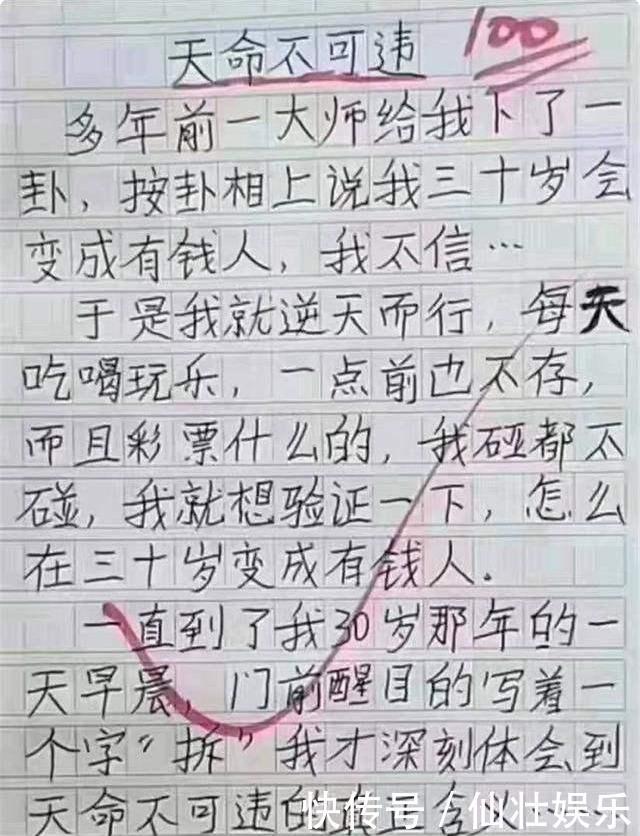 天命不可违 100
多年前一大师给我下了一
卦，按卦相上说我三十岁会
变成有钱人，我不信…
于是我就逆天而行，每天
吃喝玩乐，一点前也不存，
而且彩票什么的，我碰都不
碰，我就想验证一下，怎么
在三十岁变成有钱人.
一直到了我30岁那年的一
天早晨，门前醒目的写着一
个字“拆”我才深刻体会到
天命不可违的
快传号/仙壮娱乐